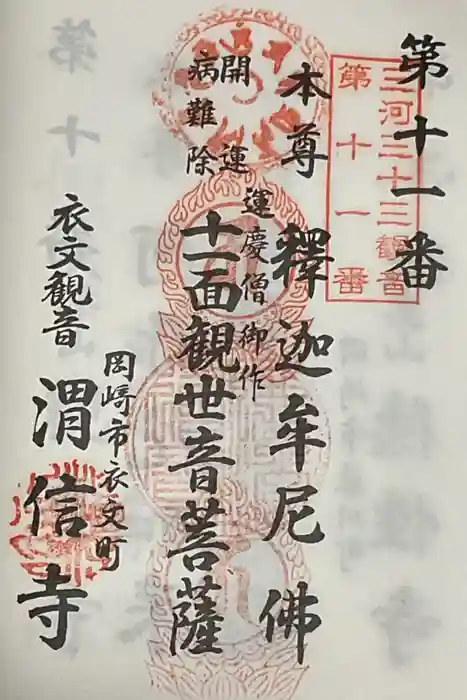 第十一番
三河三十三観音
第十一番
本尊 釋迦牟尼佛
運慶僧御作
開運
病難除
十一面観世音菩薩
岡崎市衣文町
衣文観音
渭信寺